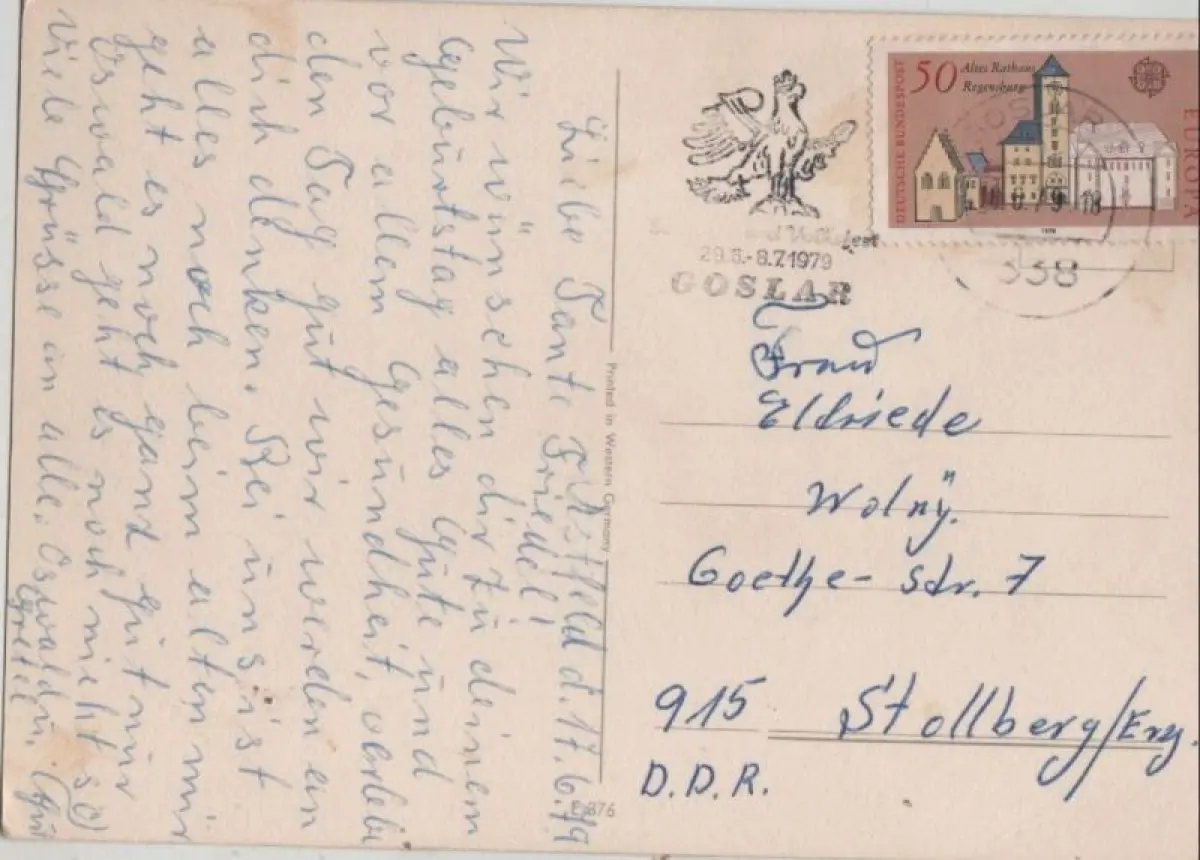 Astfeld d. 17.6.79
Liebe Tante Friedel!
Wir wünschen dir zu deinem
Geburtstag alles Gute und
vor allem Gesundheit, verlebe
den Tag gut wir werden an
dich denken. Bei uns ist
alles noch beim alten mir
geht es noch ganz gut nur
Oswald geht es noch nicht so
viele Grüsse an alle. Oswald u.
Gretel
Printed in Western Germany
E 876
und Volksfest
29.6.-8.7.1979
GOSLAR
GOSLAR
.6.79-18
338
50 Altes Rathaus
Regensburg
DEUTSCHE BUNDESPOST
EUROPA
1978
Frau
Elfriede
Wolny.
Goethe- Str. 7
915 Stollberg/Erz.
D.D.R.